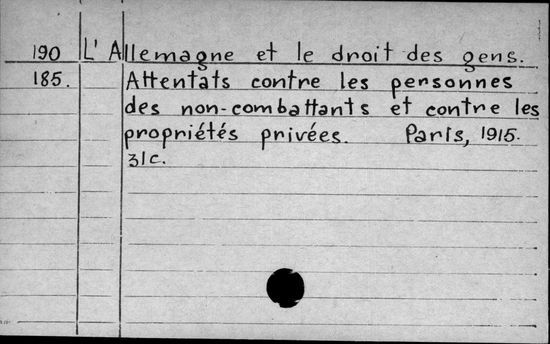 190 L'Allemagne et le droit des gens.
185. Attentats contre les personnes
des non-combattants et contre les
propriétés privées. Paris, 1915.
31c.